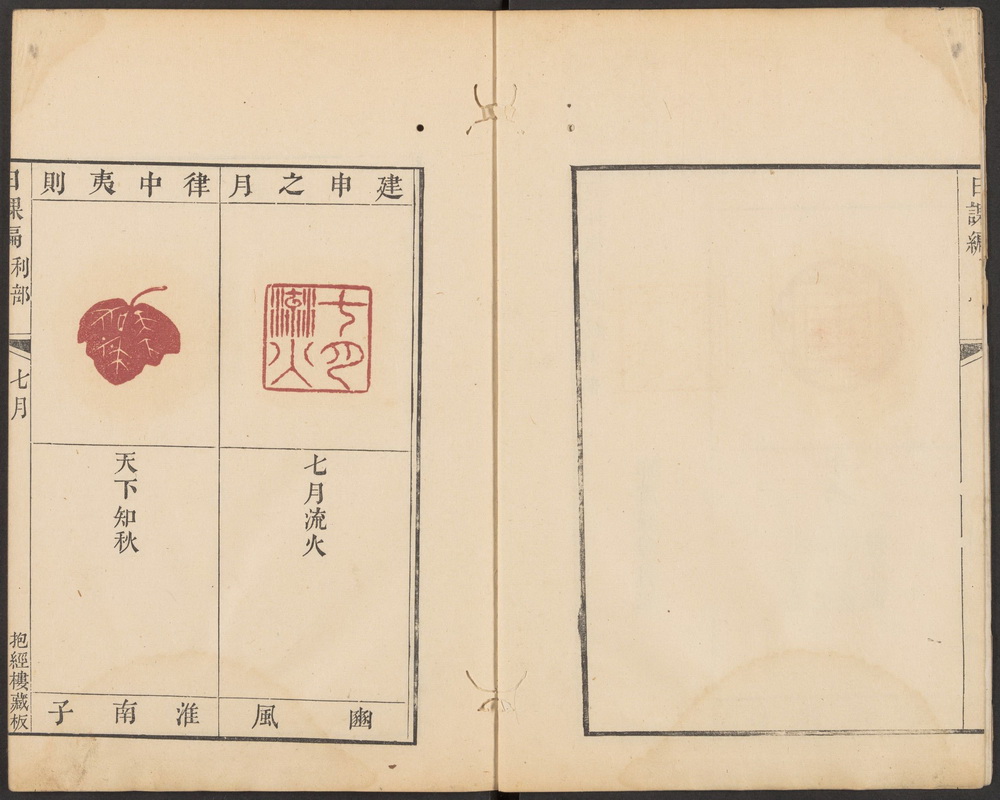 日課編
建申之月
七月流火
七月流火
豳風
律中夷則
天下知秋
天下知秋
淮南子
日課編 利部
七月
抱經樓藏板